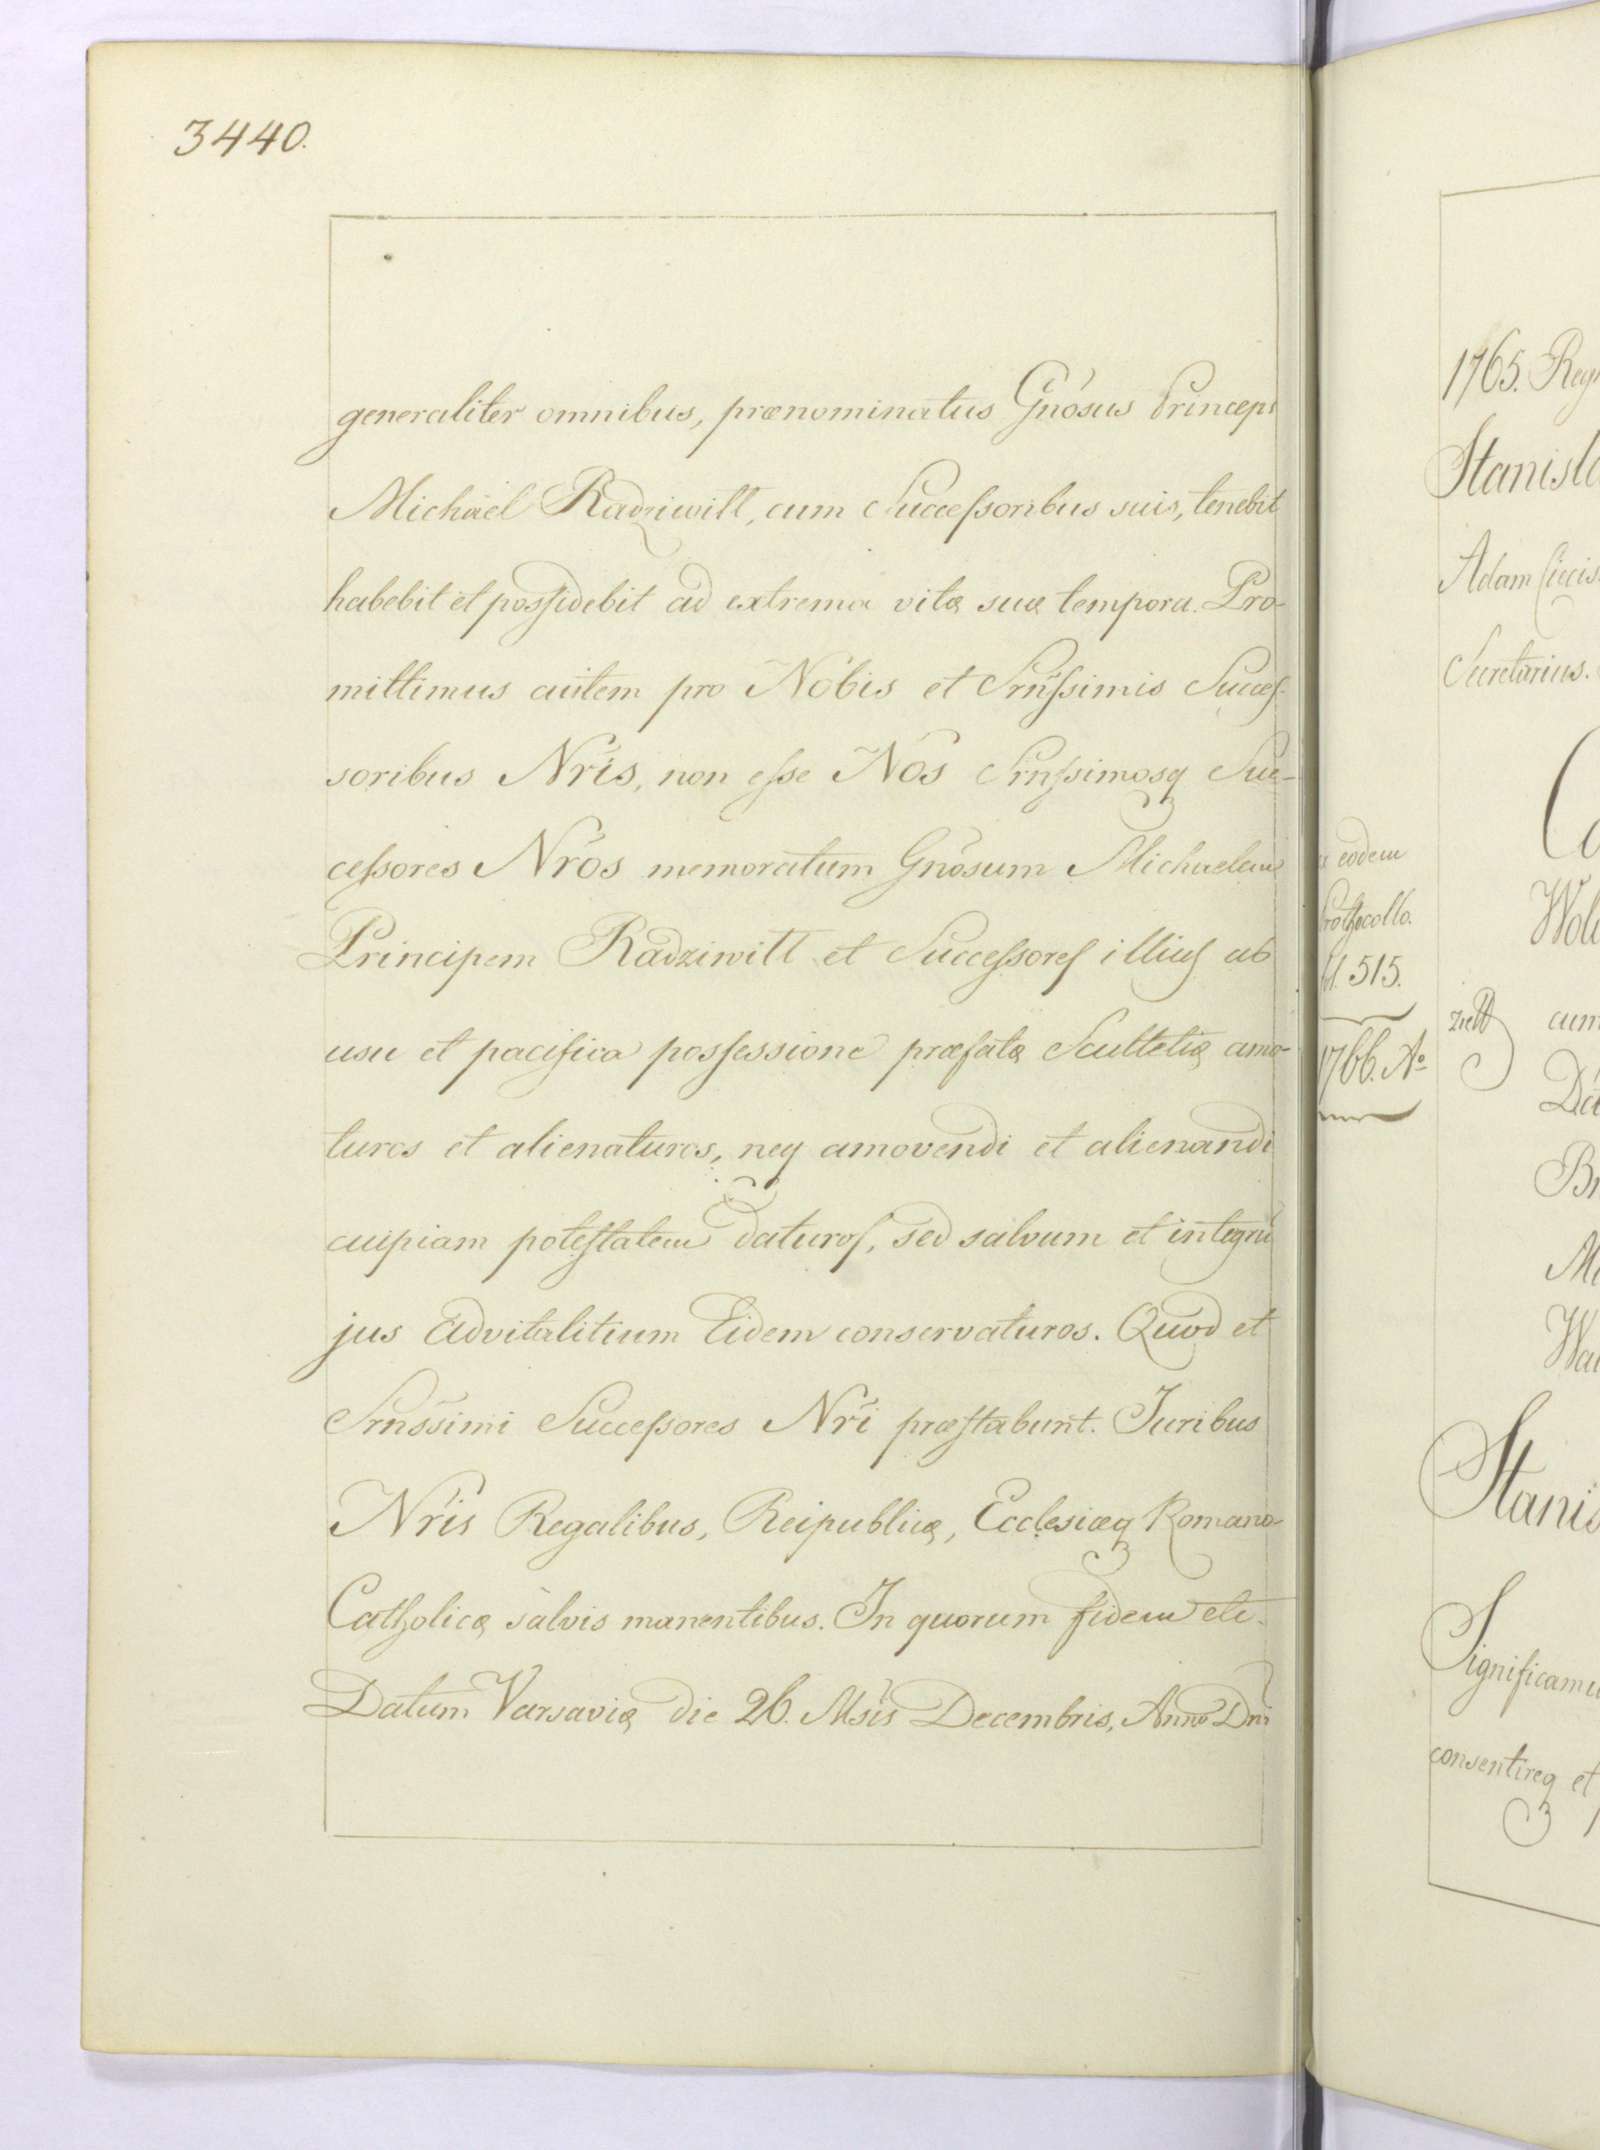 3440.
generaliter omnibus, prænominatus Gn̄osus Princeps
Michäel Radziwiłł, cum Successoribus suis, tenebit
habebit et possidebit ad extrema vitæ suæ tempora. Pro-
mittimus autem pro Nobis et Srn̄issimis Succes-
soribus Nr̄is, non esse Nos Srn̄issimosq Suc-
cessores Nr̄os memoratum Gn̄osum Michaelem
Principem Radziwiłł et Successores illius ab
usu et pacifica possessione præfatæ Scultetiæ amo-
turos et alienaturos, neq amovendi et alienandi
cuipiam potestatem daturos, sed salvum et integrū
jus advitalitium Eidem conservaturos. Quod et
Srn̄ssimi Successores Nr̄i præstabunt. Juribus
Nr̄is Regalibus, Reipublicæ, Ecclesiæq Romano-
Catholicæ salvis manentibus. In quorum fidem etc.
Datum Varsaviæ die 26. Msīs Decembris, Anno Dnī
1765. Reg
Stanisla
Adam Ciecis
Secretarius.
eodem
Prothocollo.
515.
1766. Aº
cum
Stanis
Significamu
consentireq et